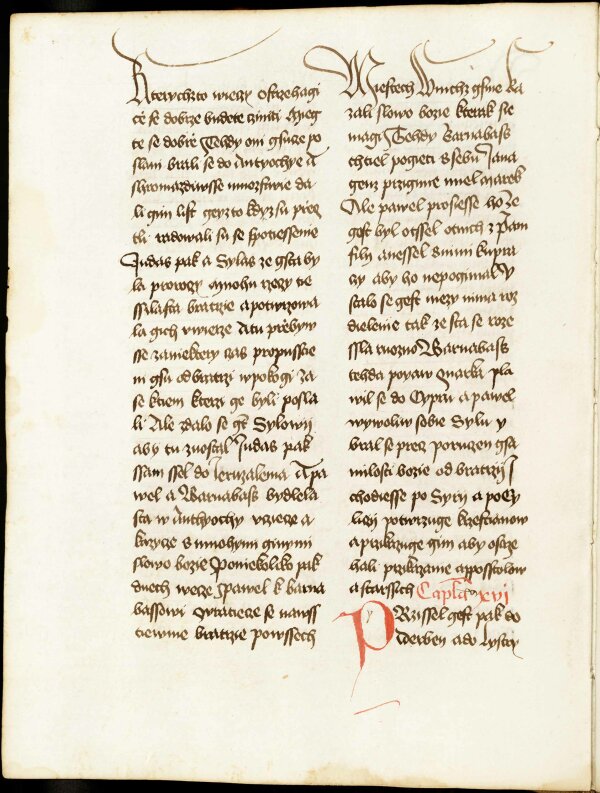 Kterychzto wiery ostrzehagi
ce se dobrze budete cziniti Mieg
te se dobrze Tehdy oni gsuce po
slani brali se do Antyochye A
shromazdiwsse mnozstwie da
li gim list genzto kdyz su przeg
tli radowali su se spotiessenie
Judas pak a Sylas ze gsta by
la prorozy mnohu rzeczy tie
ssylasta bratrzie a potwrzowa
la gich v wierze A tu przebyw
sse za niektery czas propusscie
ni gsu od bratrzi w pokogi za
se k tiem kterzi ge byli posla
li Ale zdalo se gest Sylowi
aby tu zuostal Judas pak
ssam ssel do Jeruzalema A pa
wel a Barnabass bydlela
sta w Anthyochy vcziecze a
kazycze s mnohymi ginymi
slowo bozie Poniekoliko pak
dnech wecze Pawel k barna
bassowi Wratiecze se nawss
tiewme bratrzie po wssech
Miestech W nichz gsme ka
zali slowo bozie kterak se
magi Tehdy Barnabass
chtiel pogieti s sebu Jana
genz przigmie miel marek
Ale pawel prosiesse ho ze
gest byl otssel otnich z Pam
fily a nessel s nimi k upra
cy aby ho nepogimal Y
stalo se gest mezy nima roz
dielenie tak ze sta se roze
ssla ruozno Barnabass
tehda poyaw Marka pla
wil se do Cypru a pawel
wywoliw sobie Sylu y
bral se precz poruczen gsa
milosti bozie od bratrzij I
chodiesse po Syry a po Cy
licij potwrzuge krzestianow
a przikazuge gim aby ostrze
hali przikazanie appostolow
a starssich Capitola xvi
PRzissel gest pak do
derben a do lystry